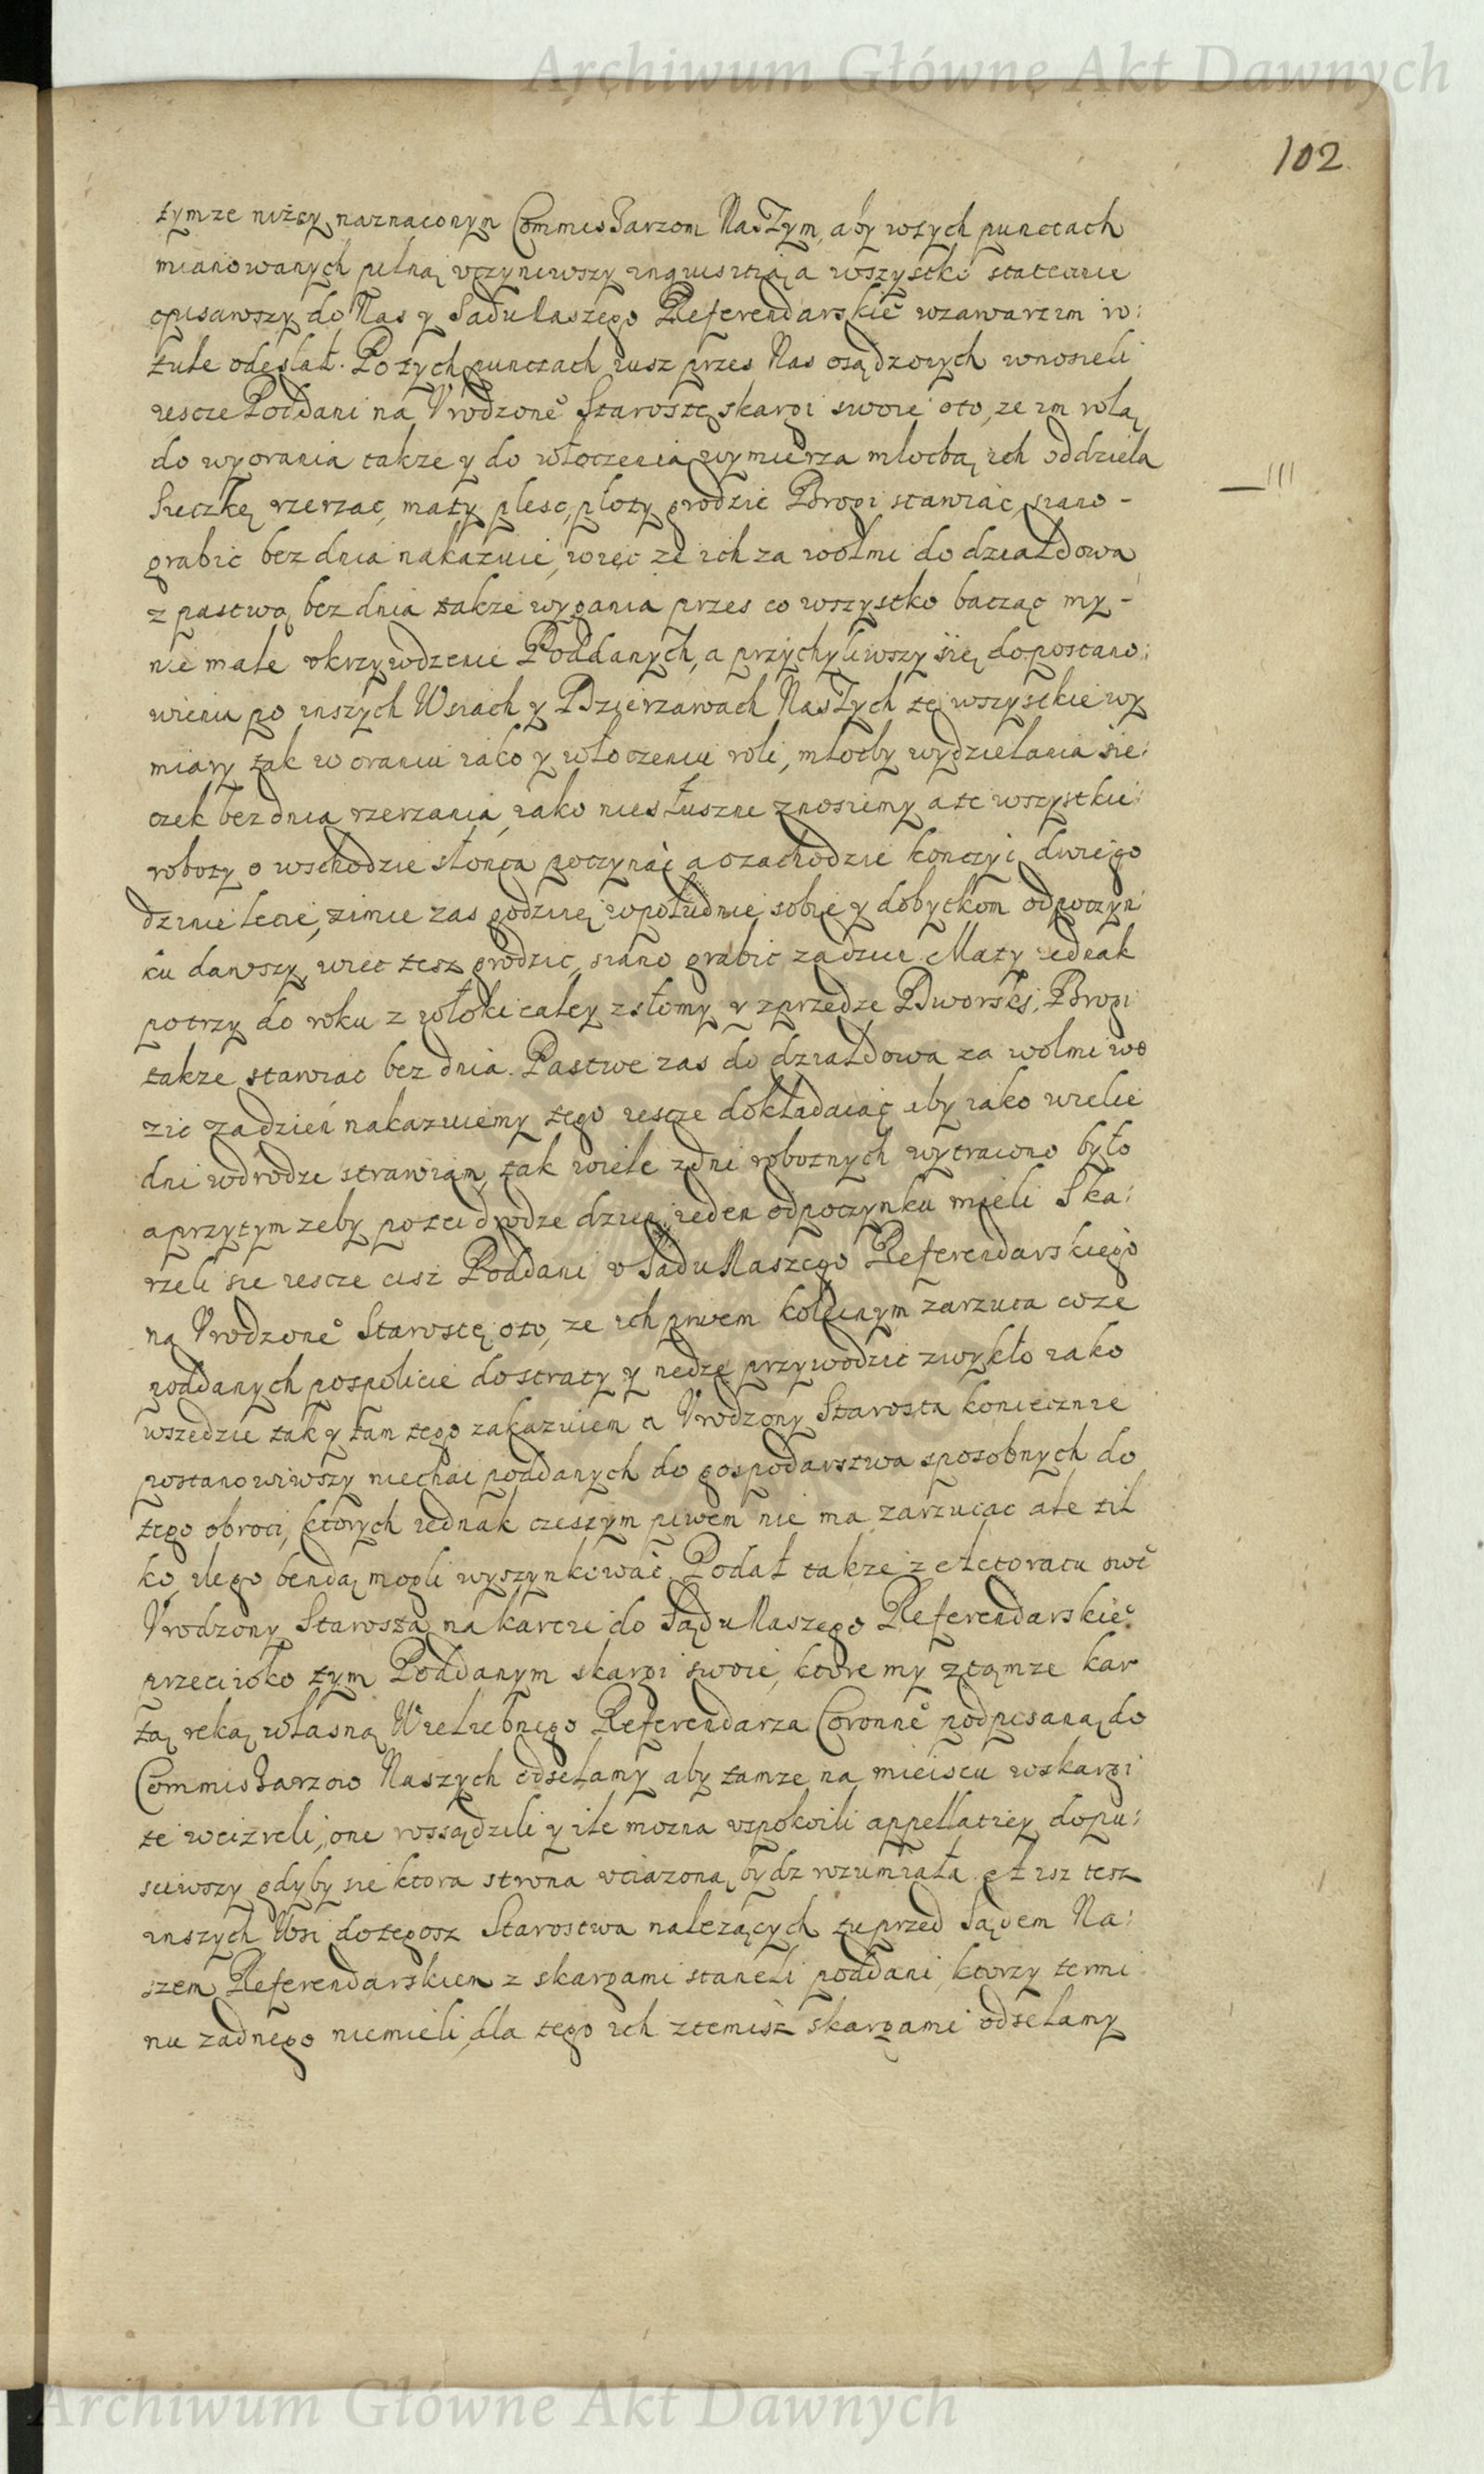 Archiwum Główne Akt Dawnych
102
tymze niżey naznaconym Commissarzom Naszym, aby wtych punctach
mianowanych pilną vczyniwszy inquisitią a wszystko statecznie
opisawszy do Nas y Sadu Naszego Referendarskieº wzawartim ro:
tule odesłał. Potych punctach iusz przes Nas osądzonych wnosieli
iescze Poddani na Vrodzoneº Starostę skargi swoie oto, ze im rolą
do wyorania takze y do włoczenia wymierza młocbą ich oddziela
Sieczkę rzerzac, maty plesc, płoty grodzic Brogi stawiac, siano -
grabic bez dnia nakazuie, więc ze ich za wolmi do działdowa
z pastwą bez dnia takze wygania przes co wszystko bacząc my -
nie małe vkrzywdzenie Poddanych, a przychyliwszy się do postano:
wienia po inszych Wsiach y Dzierzawach Naszych te wszystkie wy
miary tak w oraniu iako y włoczeniu roli, młocby wydzielania sie:
czek bez dnia rzerzania, iako niesłuszne znosiemy a te wszystkie:
roboty o wschodzie słonca poczynac a ozachodzie konczyc dwie go
dzinie lecie, zimie zas godzinę wpołudnie sobie y dobytkom odpoczyn
ku dawszy, wiec tesz grodzic, siano grabic zadzien Maty iednak
potrzy do roku z włoki całey z słomy y z przedze Dworski, Brogi
takze stawiac bez dnia. Pastwe zas do działdowa za wolmi wo
zic zadzień nakazuiemy tego iescze dokładaiąc aby iako wiele
dni wdrodze strawiąm, tak wiele zdni robotnych wytracono było
a przytym zeby po tei drodze dzien ieden odpoczynku mieli Ska:
rzeli sie iescze cisz Poddani v Sadu Naszego Referendarskiego
na Vrodzoneº Starostę oto, ze ich piwem kolęinym zarzuca coze
poddanych pospolicie do straty y nedzę przywodzic zwykło iako
wszedzie tak y tam tego zakazuiem a Vrodzony Starosta koniecznie
postanowiwszy niechai poddanych do gospodarstwa sposobnych do
tego obroci, ktorych iednak czeszym piwem nie ma zarzucac ale til
ko ilego bendą mogli wyszynkować. Podał takze z Actoratu sweº
Vrodzony Starosta na karcie do Sądu Naszego Referendarskieº
przeciwko tym Poddanym skargi swoie, ktore my ztąmze kar
tą reką własną Wielebnego Referendarza Coronneº podpisaną do
Commissarzow Naszych odsełamy aby tamze na mieiscu wskargi
te weizreli, one rossądzili y ile mozna vspokoili appellatiey dopu:
sciwszy gdyby sie ktora strona vciazona bydz rozumiała. A isz tesz
inszych Wsi dotegosz Starostwa nalezących tu przed Sądem Na:
szem Referendarskiem z skargami staneli poddani, ktorzy termi
nu zadnego niemieli, dla tego ich ztemisz skargami odsełamy
Archiwum Główne Akt Dawnych